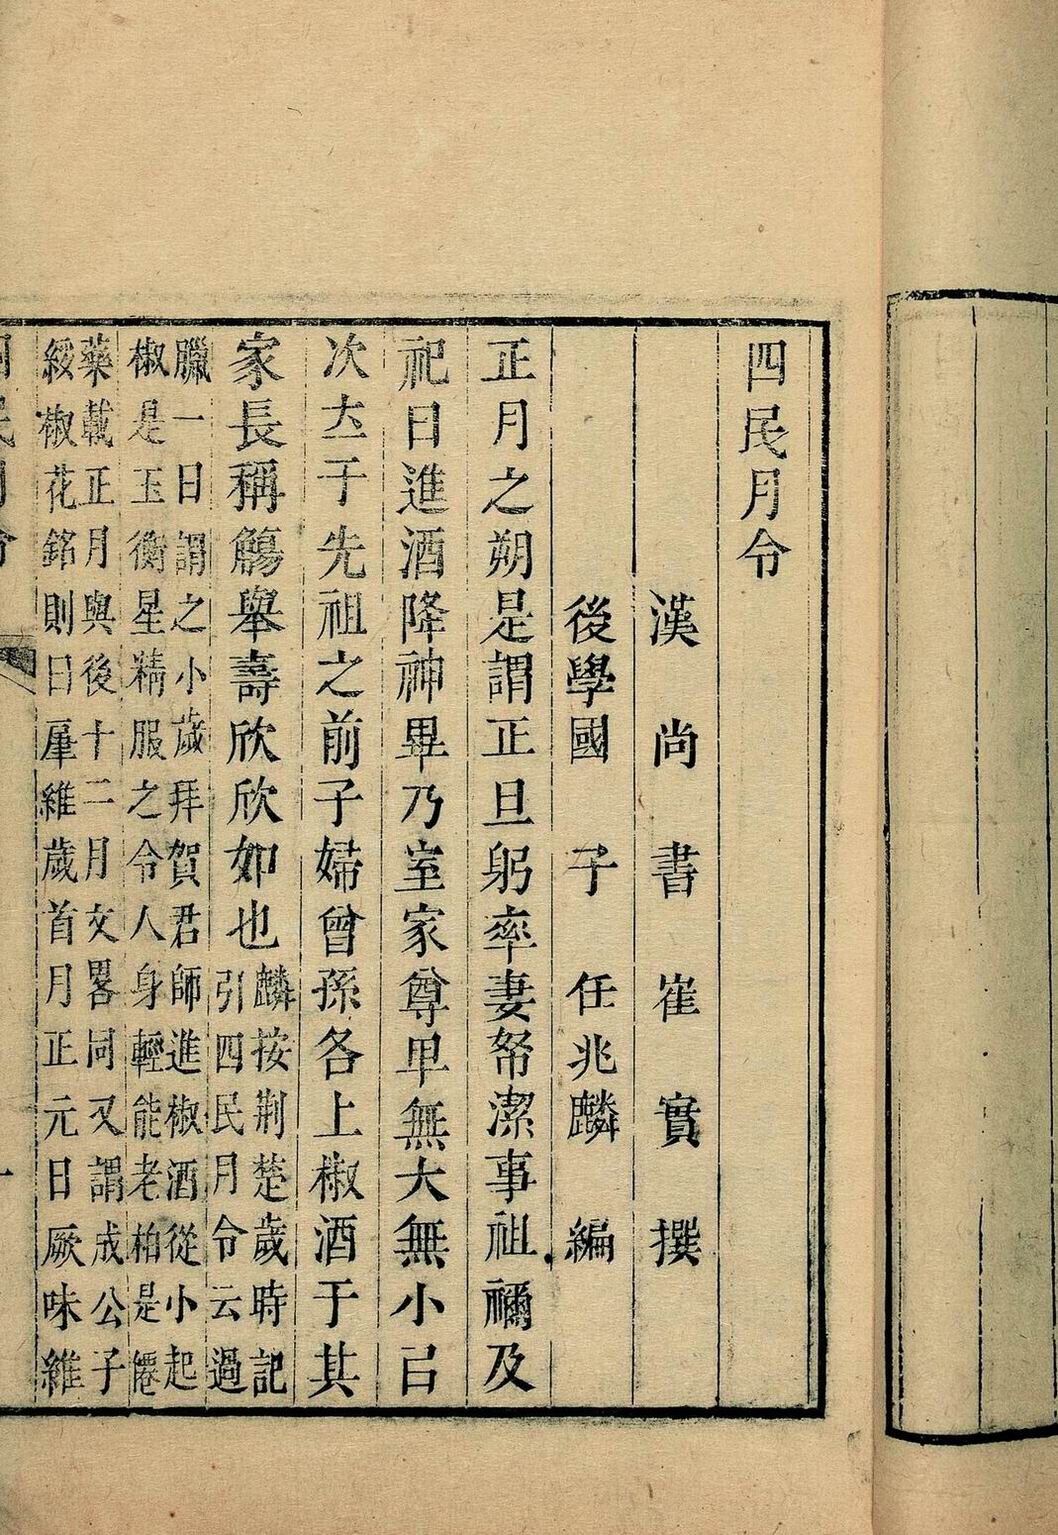 四民月令
漢尚書崔實撰
後學國子任兆麟編
正月之朔是謂正旦躬率妻帑潔事祖禰及
祀日進酒降神畢乃室家尊卑無大無小㠯
次𠫼于先祖之前子婦曾孫各上椒酒于其
家長稱觴舉壽欣欣如也
麟按荆楚歲時記
引四民月令云過
臘一日謂之小歲拜賀君師進椒酒從小起
椒是玉衡星精服之令人身輕能老柏是僊
藥載正月與後十二月文畧同又謂成公子
綏椒花銘則曰肇維歲首月正元日厥味維